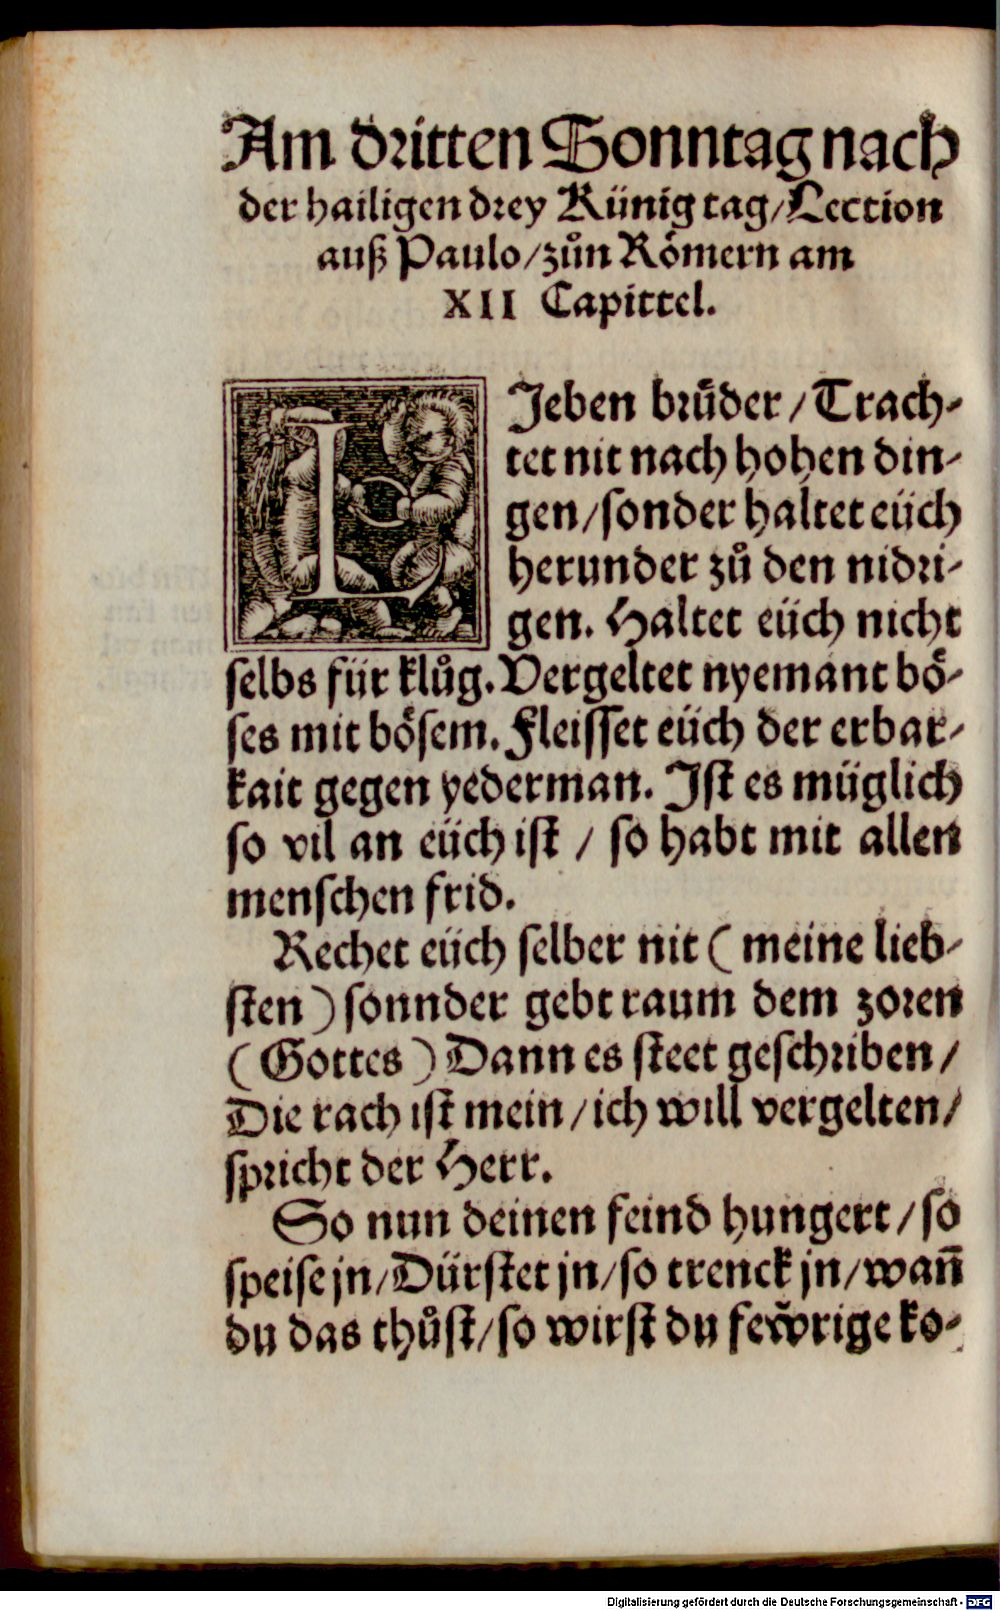 Am dritten Sonntag nach
der hailigen drey Künig tag/Lection
auß Paulo/zůn Römern am
XII Capittel.
LJeben brůder/Trach-
tet nit nach hohen din-
gen/sonder haltet eüch
herunder zů den nidri-
gen. Haltet eüch nicht
selbs für klůg. Vergeltet nyemant bö-
ses mit bösem. Fleisset eüch der erbar-
kait gegen yederman. Ist es müglich
so vil an eüch ist / so habt mit allen
menschen frid.
Rechet eüch selber nit ( meine lieb-
sten ) sonnder gebt raum dem zoren
( Gottes ) Dann es steet geschriben /
Die rach ist mein / ich will vergelten /
spricht der Herr.
So nun deinen feind hungert / so
speise jn/Dürstet jn/so trenck jn/wañ
du das thůst/so wirst du feẅrige ko-
Digitalisierung gefördert durch die Deutsche Forschungsgemeinschaft - DFG